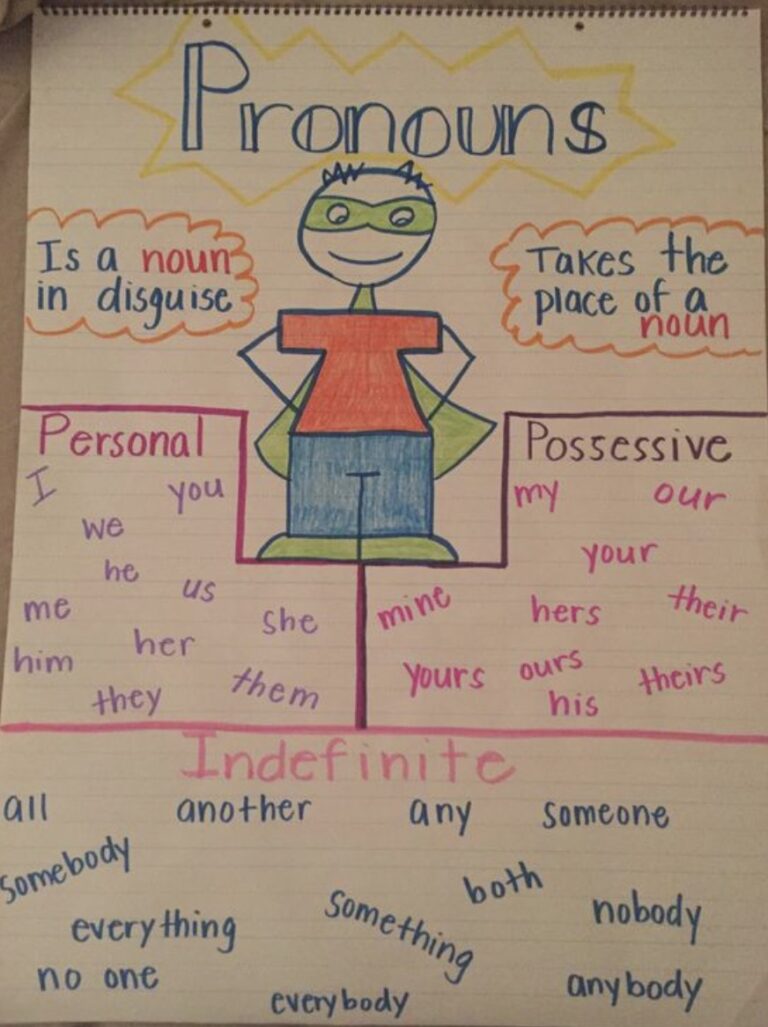 Pronouns
Is a noun
in disguise
Takes the
place of a
noun
Personal
I you
we
he us
me she
him her
they them
Possessive
my our
your
mine hers their
yours ours theirs
his
Indefinite
all another any someone
somebody both
everything something nobody
no one everybody anybody